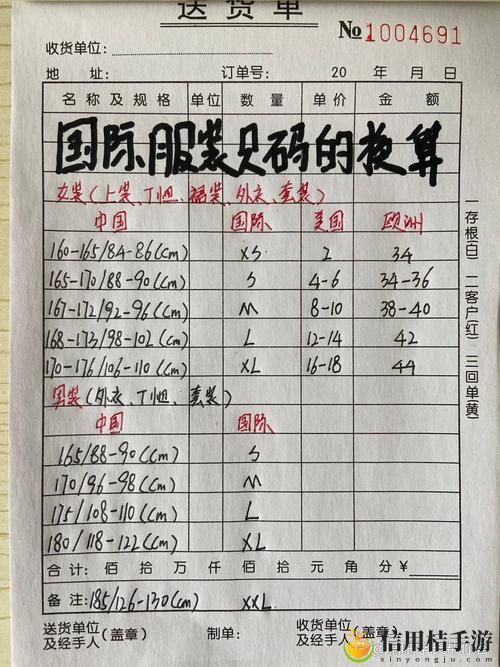 送货单
№1004691
收货单位:
地 址: 订单号: 20 年 月 日
名称及规格 单位 数量 单价 金额
国际服装尺码的换算
女装(上装、T恤、裙装、外衣、套装)
中国 国际 美国 欧洲
160-165/84-86(cm) XS 2 34
165-170/88-90(cm) S 4-6 34-36
167-172/92-96(cm) M 8-10 38-40
168-173/98-102(cm) L 12-14 42
170-176/106-110(cm) XL 16-18 44
男装(外衣、T恤、套装)
中国 国际
165/88-90(cm) S
170/96-98(cm) M
175/108-110(cm) L
180/118-122(cm) XL
合计: 佰 拾 万 仟 佰 拾 元 角 分 ¥
备注: 185/126-130(cm) XXL
送货单位及经手人(盖章) 制单: 收货单位及经手人(盖章)
一存根(白) 二客户(红) 三回单(黄)
信用桔手游
xinyongju.com